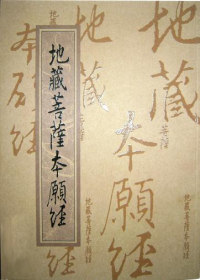 地藏菩薩本願經
地藏
菩薩
本願經
本願經
地藏菩薩本願經
地藏菩薩本願經